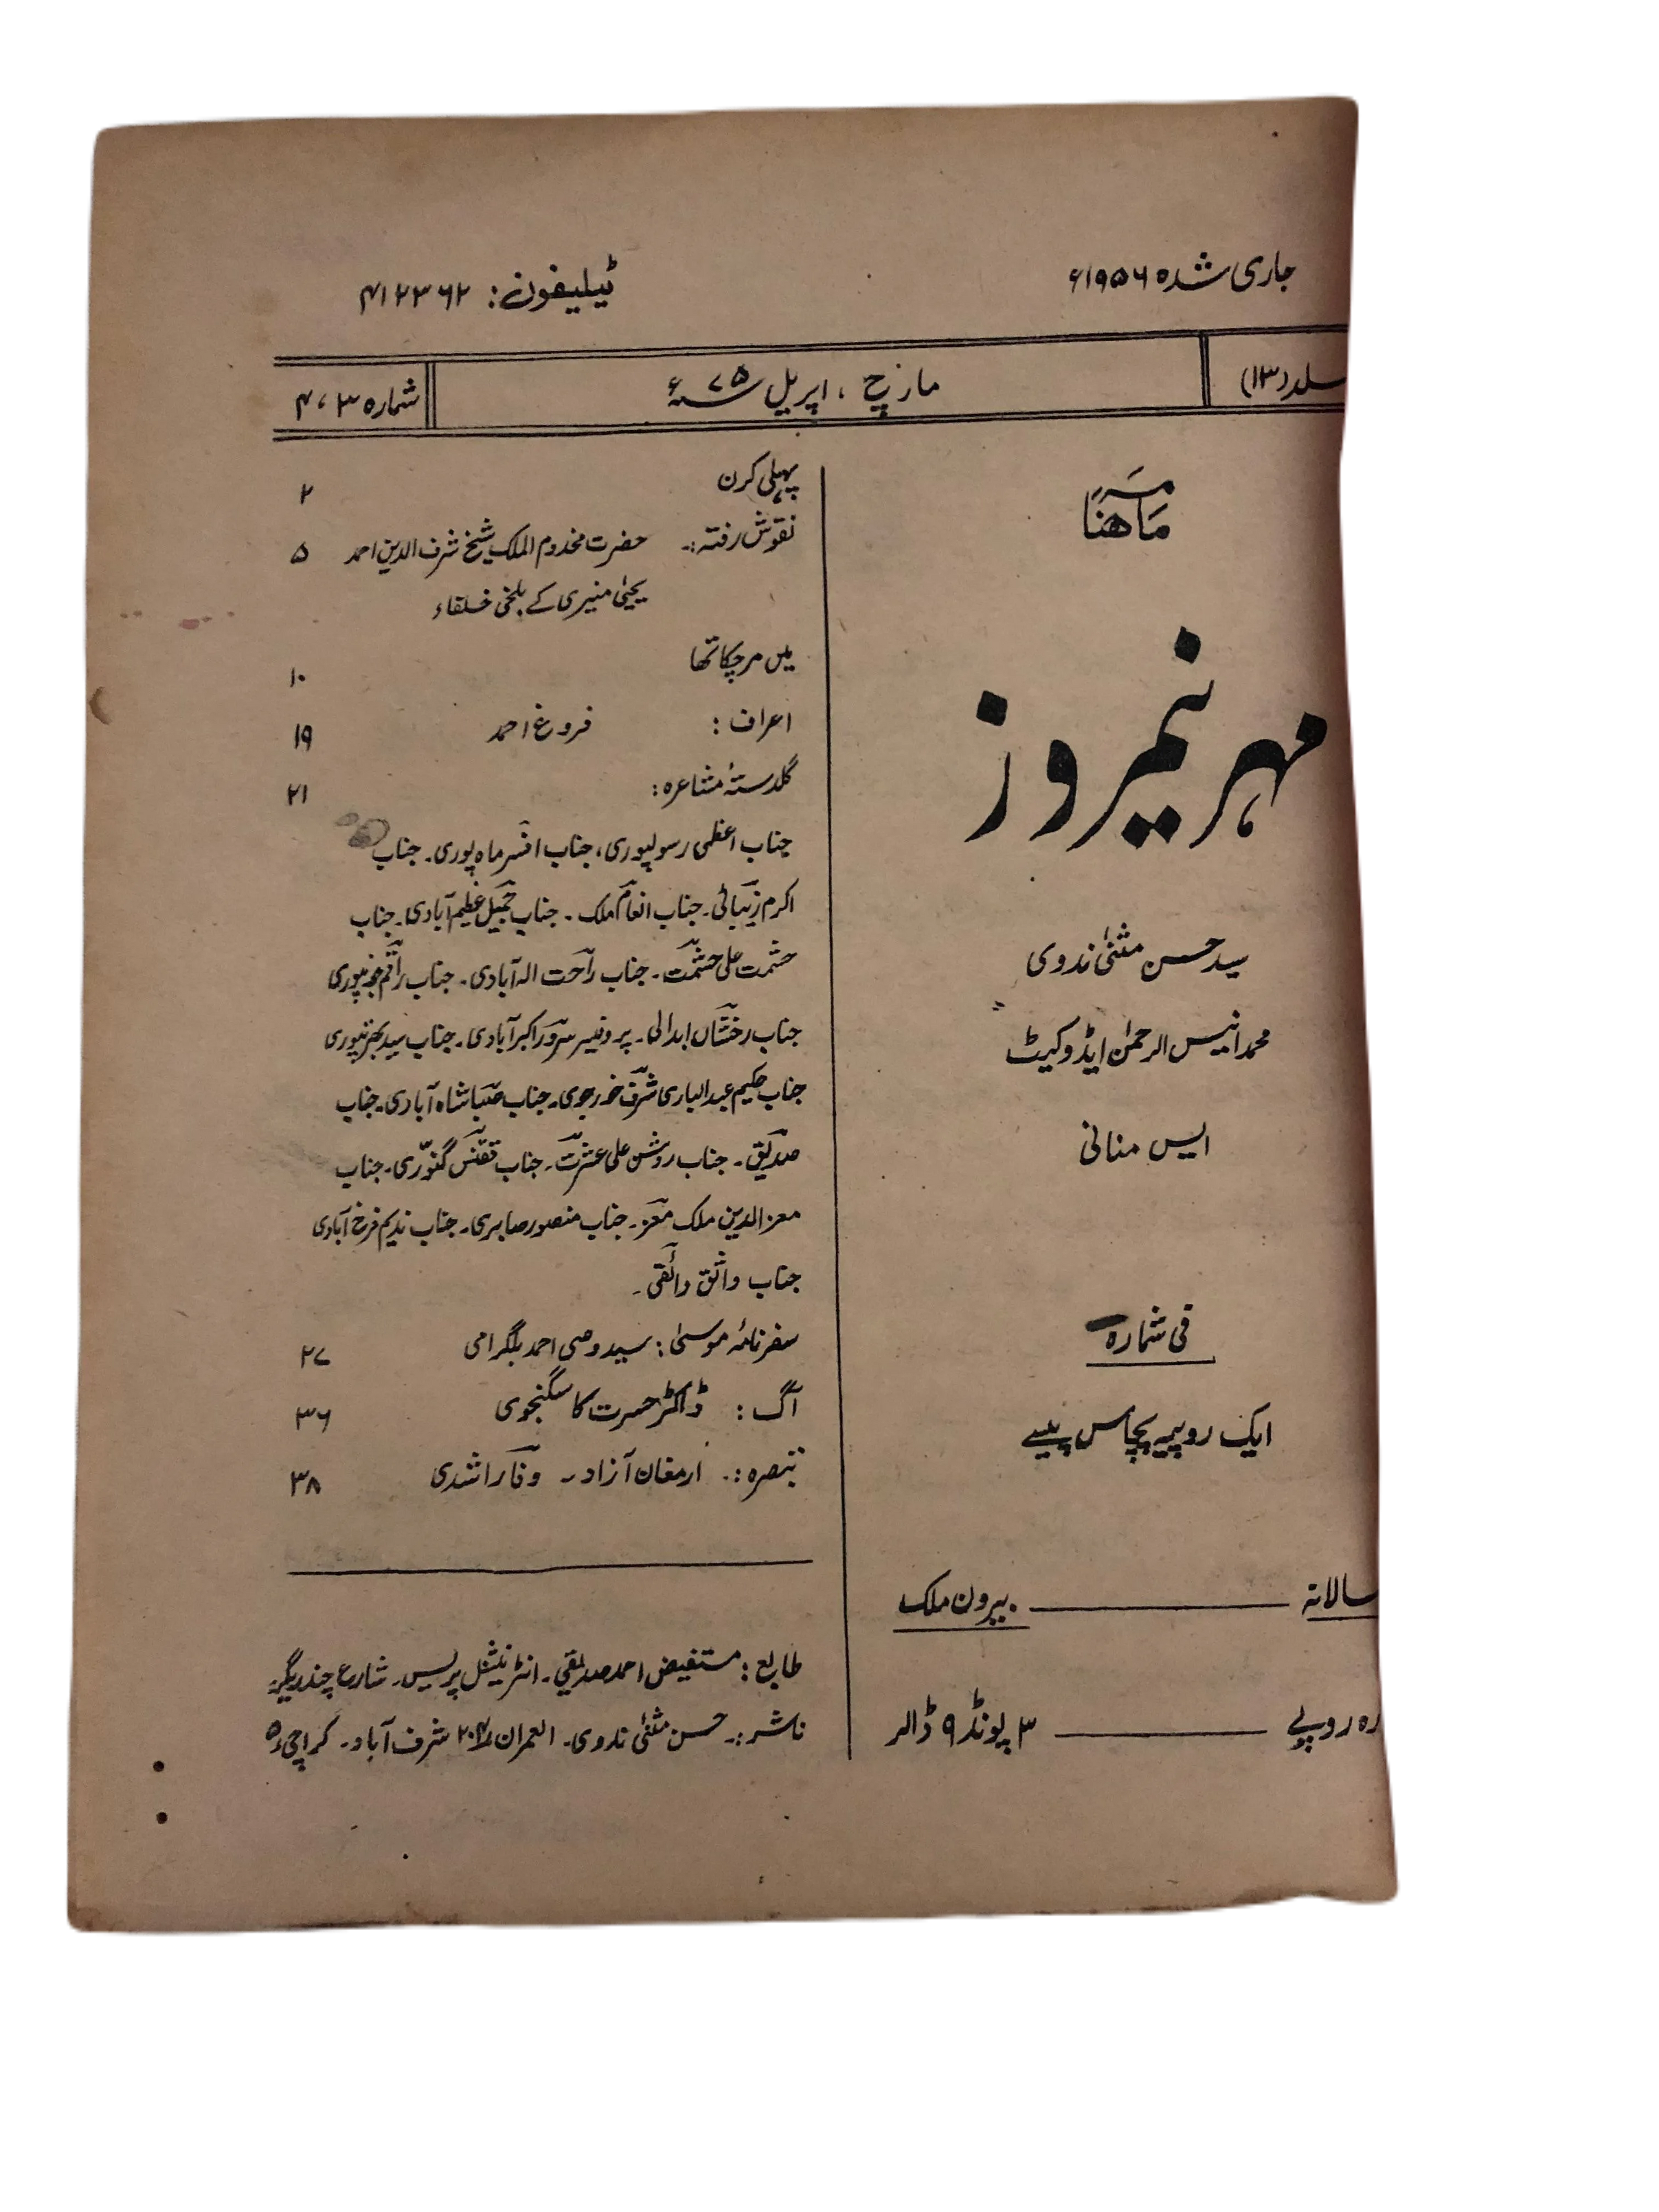 جاری شدہ ۱۹۵۶ء
ٹیلیفون: ۴۱۲۳۶۲
جلد (۱۳)
مارچ ، اپریل ۷۵ء
شمارہ ۳،۴
ماہنامہ
مہر نیمروز
سید حسن مثنیٰ ندوی
محمد انیس الرحمٰن ایڈوکیٹ
ایس منانی
فی شمارہ
ایک روپیہ پچاس پیسے
سالانہ ــــ بیرون ملک
رہ روپے ــــ ۳ پونڈ ۹ ڈالر
پہلی کرن ۲
نقوش رفتہ:۔ حضرت مخدوم الملک شیخ شرف الدین احمد ۵
یحییٰ منیری کے بلخی خلفاء
میں مرچکا تھا ۱۰
اعراف : فروغ احمد ۱۹
گلدستۂ مشاعرہ: ۲۱
جناب اعظمی رسولپوری، جناب افسر ماہ پوری۔ جناب
اکرم زیبائی۔ جناب انعام ملک ۔ جناب جمیل عظیم آبادی۔ جناب
حشمت علی حشمت۔ جناب راحت الہ آبادی۔ جناب راقم
جناب رخشاں ابدالی۔ پروفیسر سرور اکبر آبادی۔ جناب سید
جناب حکیم عبدالباری شرف خورجوی۔ جناب صبا شاہ آبادی۔ جناب
صدیق۔ جناب روشن علی عشرت۔ جناب ققنس گنوری۔ جناب
معز الدین ملک معز۔ جناب منصور صابری۔ جناب ندیم فرخ آبادی
جناب واثق واثقی۔
سفرنامۂ موسیٰ: سید وصی احمد بلگرامی ۲۷
آگ : ڈاکٹر حسرت کاسگنجوی ۳۶
تبصرہ :۔ ارمغان آزاد۔ وفا راشدی ۳۸
طابع : مستفیض احمد صدیقی۔ انٹرنیشنل پریس۔ شارع چندریگر
ناشر :۔ حسن مثنیٰ ندوی۔ العمران شرف آباد۔ کراچی ۵